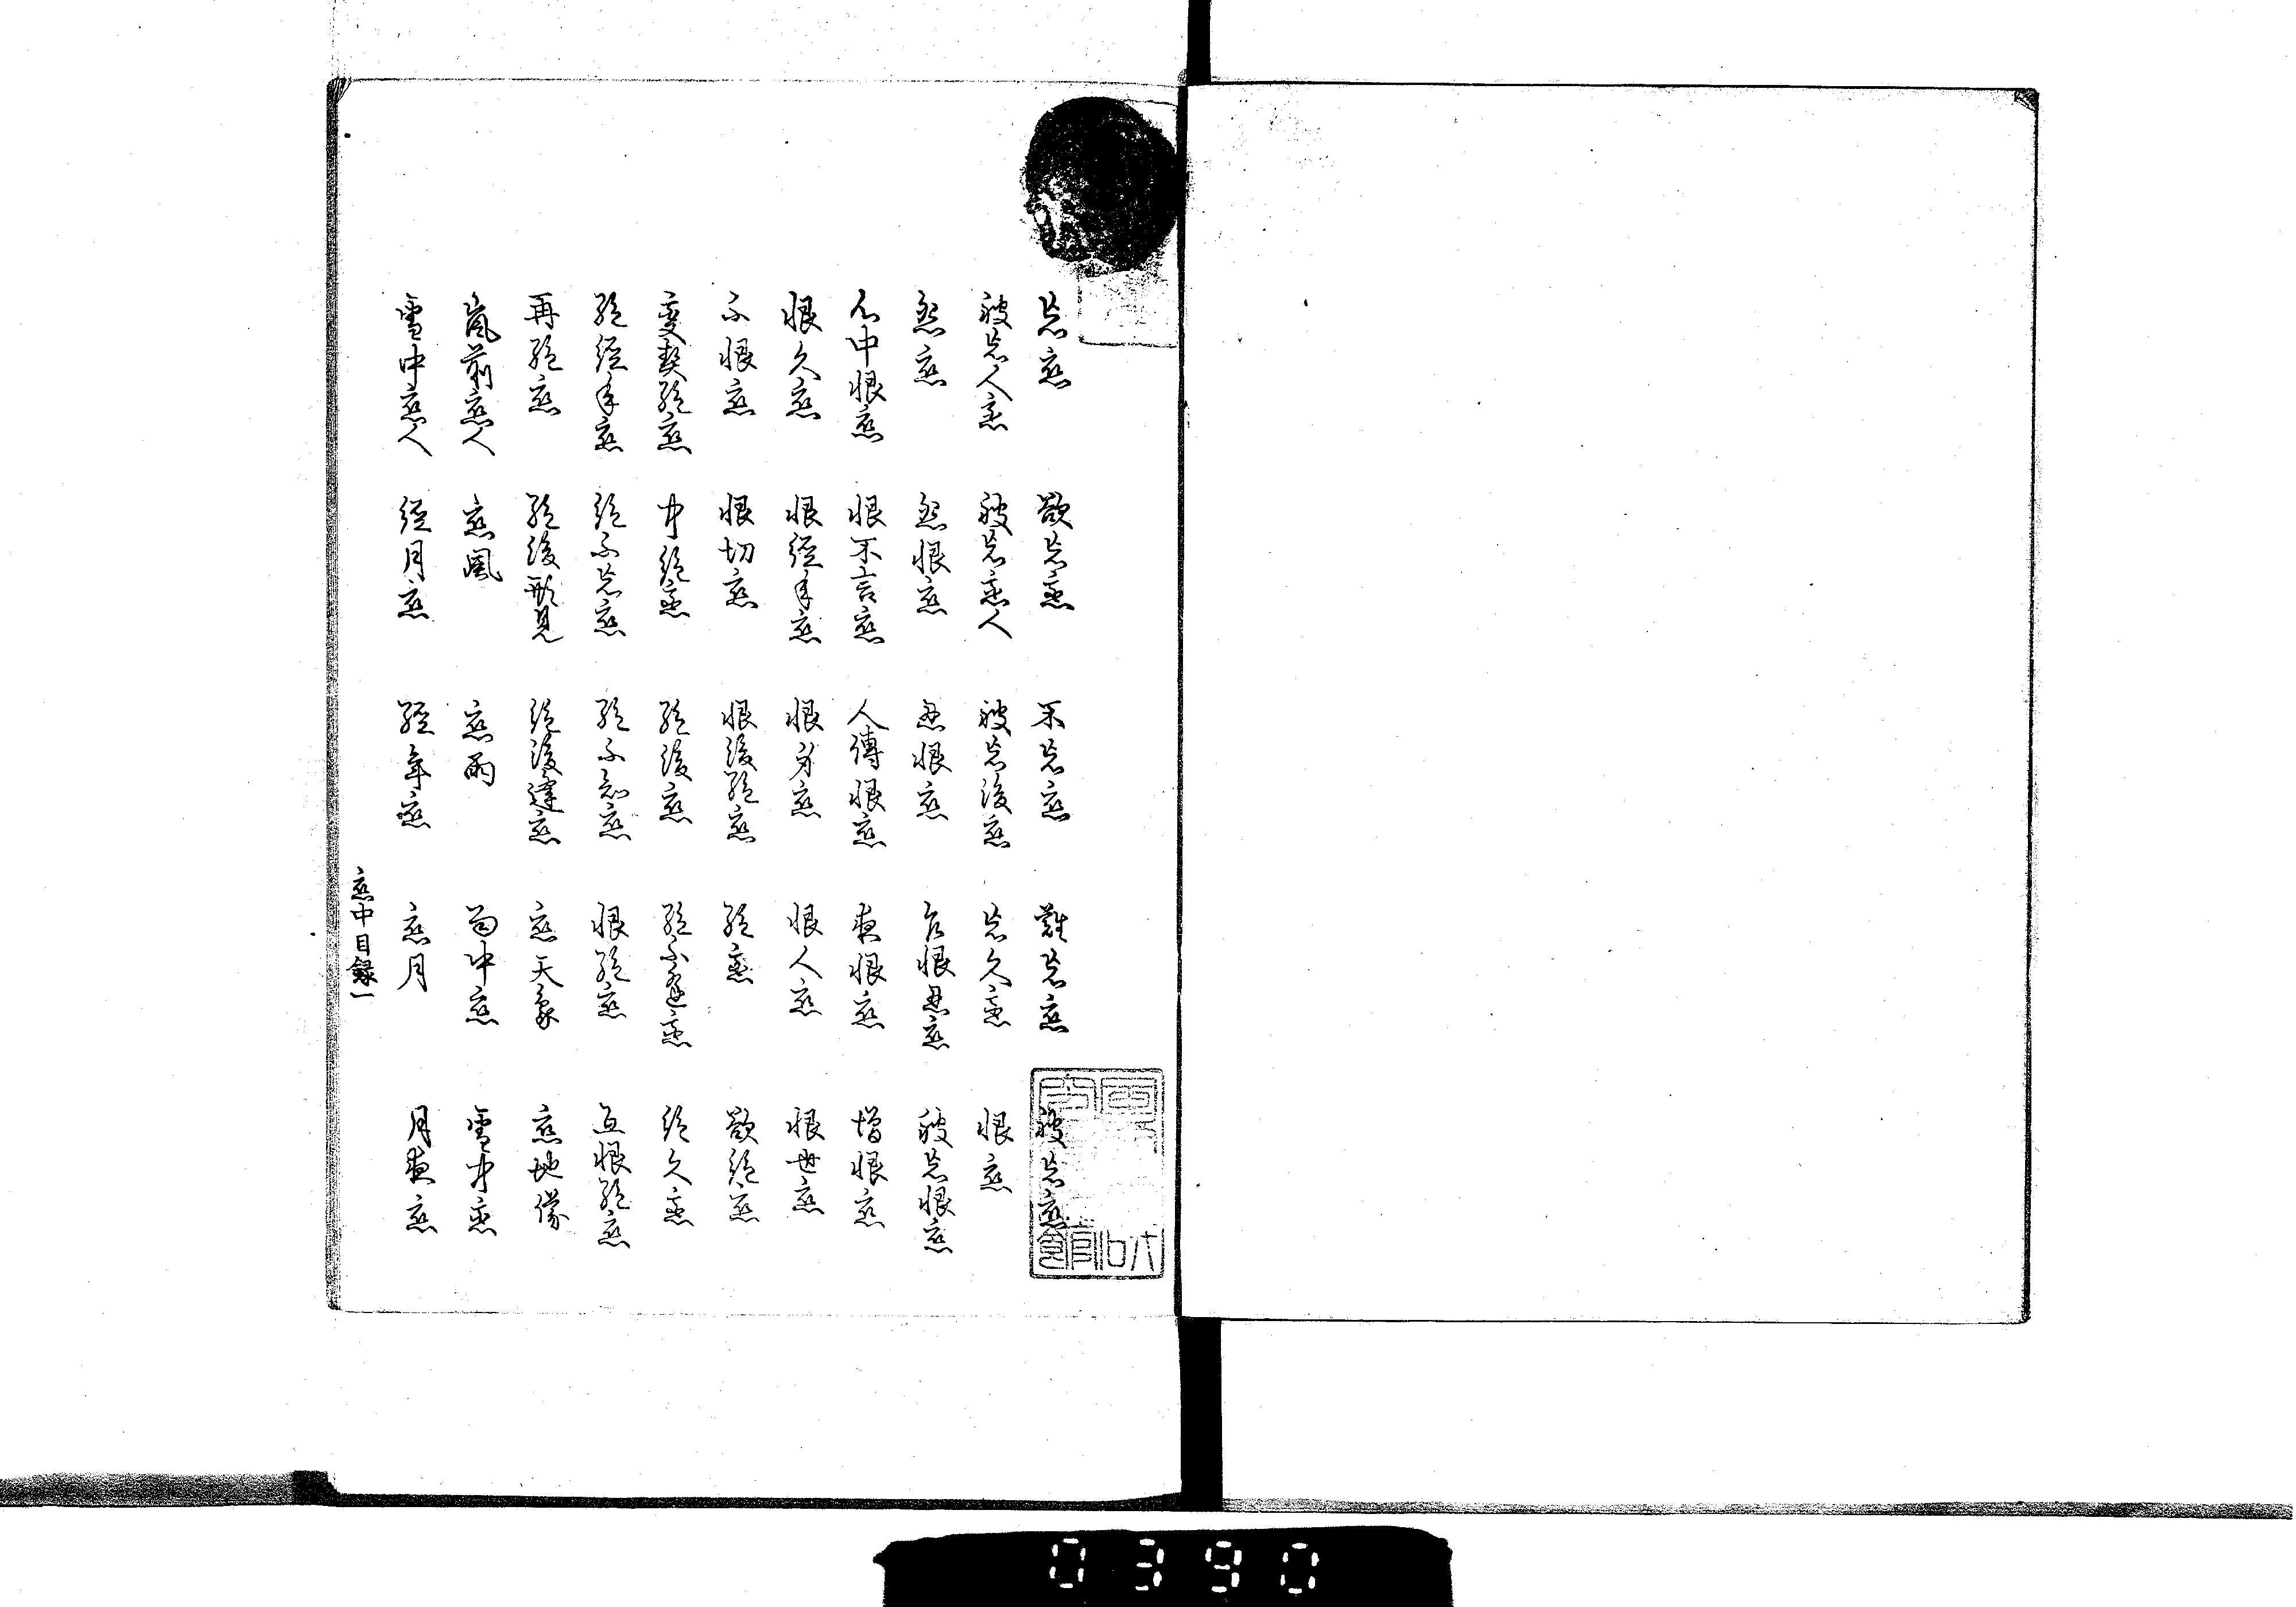 忘恋 欲忘恋 不忘恋 難忘恋 被忘恋
被忘人恋 被忘恋人 被忘後恋 忘久恋 恨恋
怨恋 怨恨恋 忍恨恋 恨忍恋 被忘恨恋
心中恨恋 恨不言恋 人傳恨恋 夜恨恋 増恨恋
恨久恋 恨経年恋 恨身恋 恨人恋 恨世恋
不恨恋 恨切恋 恨後絶恋 絶恋 欲絶恋
変契絶恋 中絶恋 絶後恋 絶不逢恋 絶久恋
絶経年恋 絶不忘恋 絶不知恋 恨絶恋 互恨絶恋
再絶恋 絶後形見 絶後逢恋 恋天象 恋地儀
嵐前恋人 恋風 恋雨 雨中恋 雪中恋
雪中恋人 経月恋 経年恋 恋月 月夜恋
恋中目録一
0390